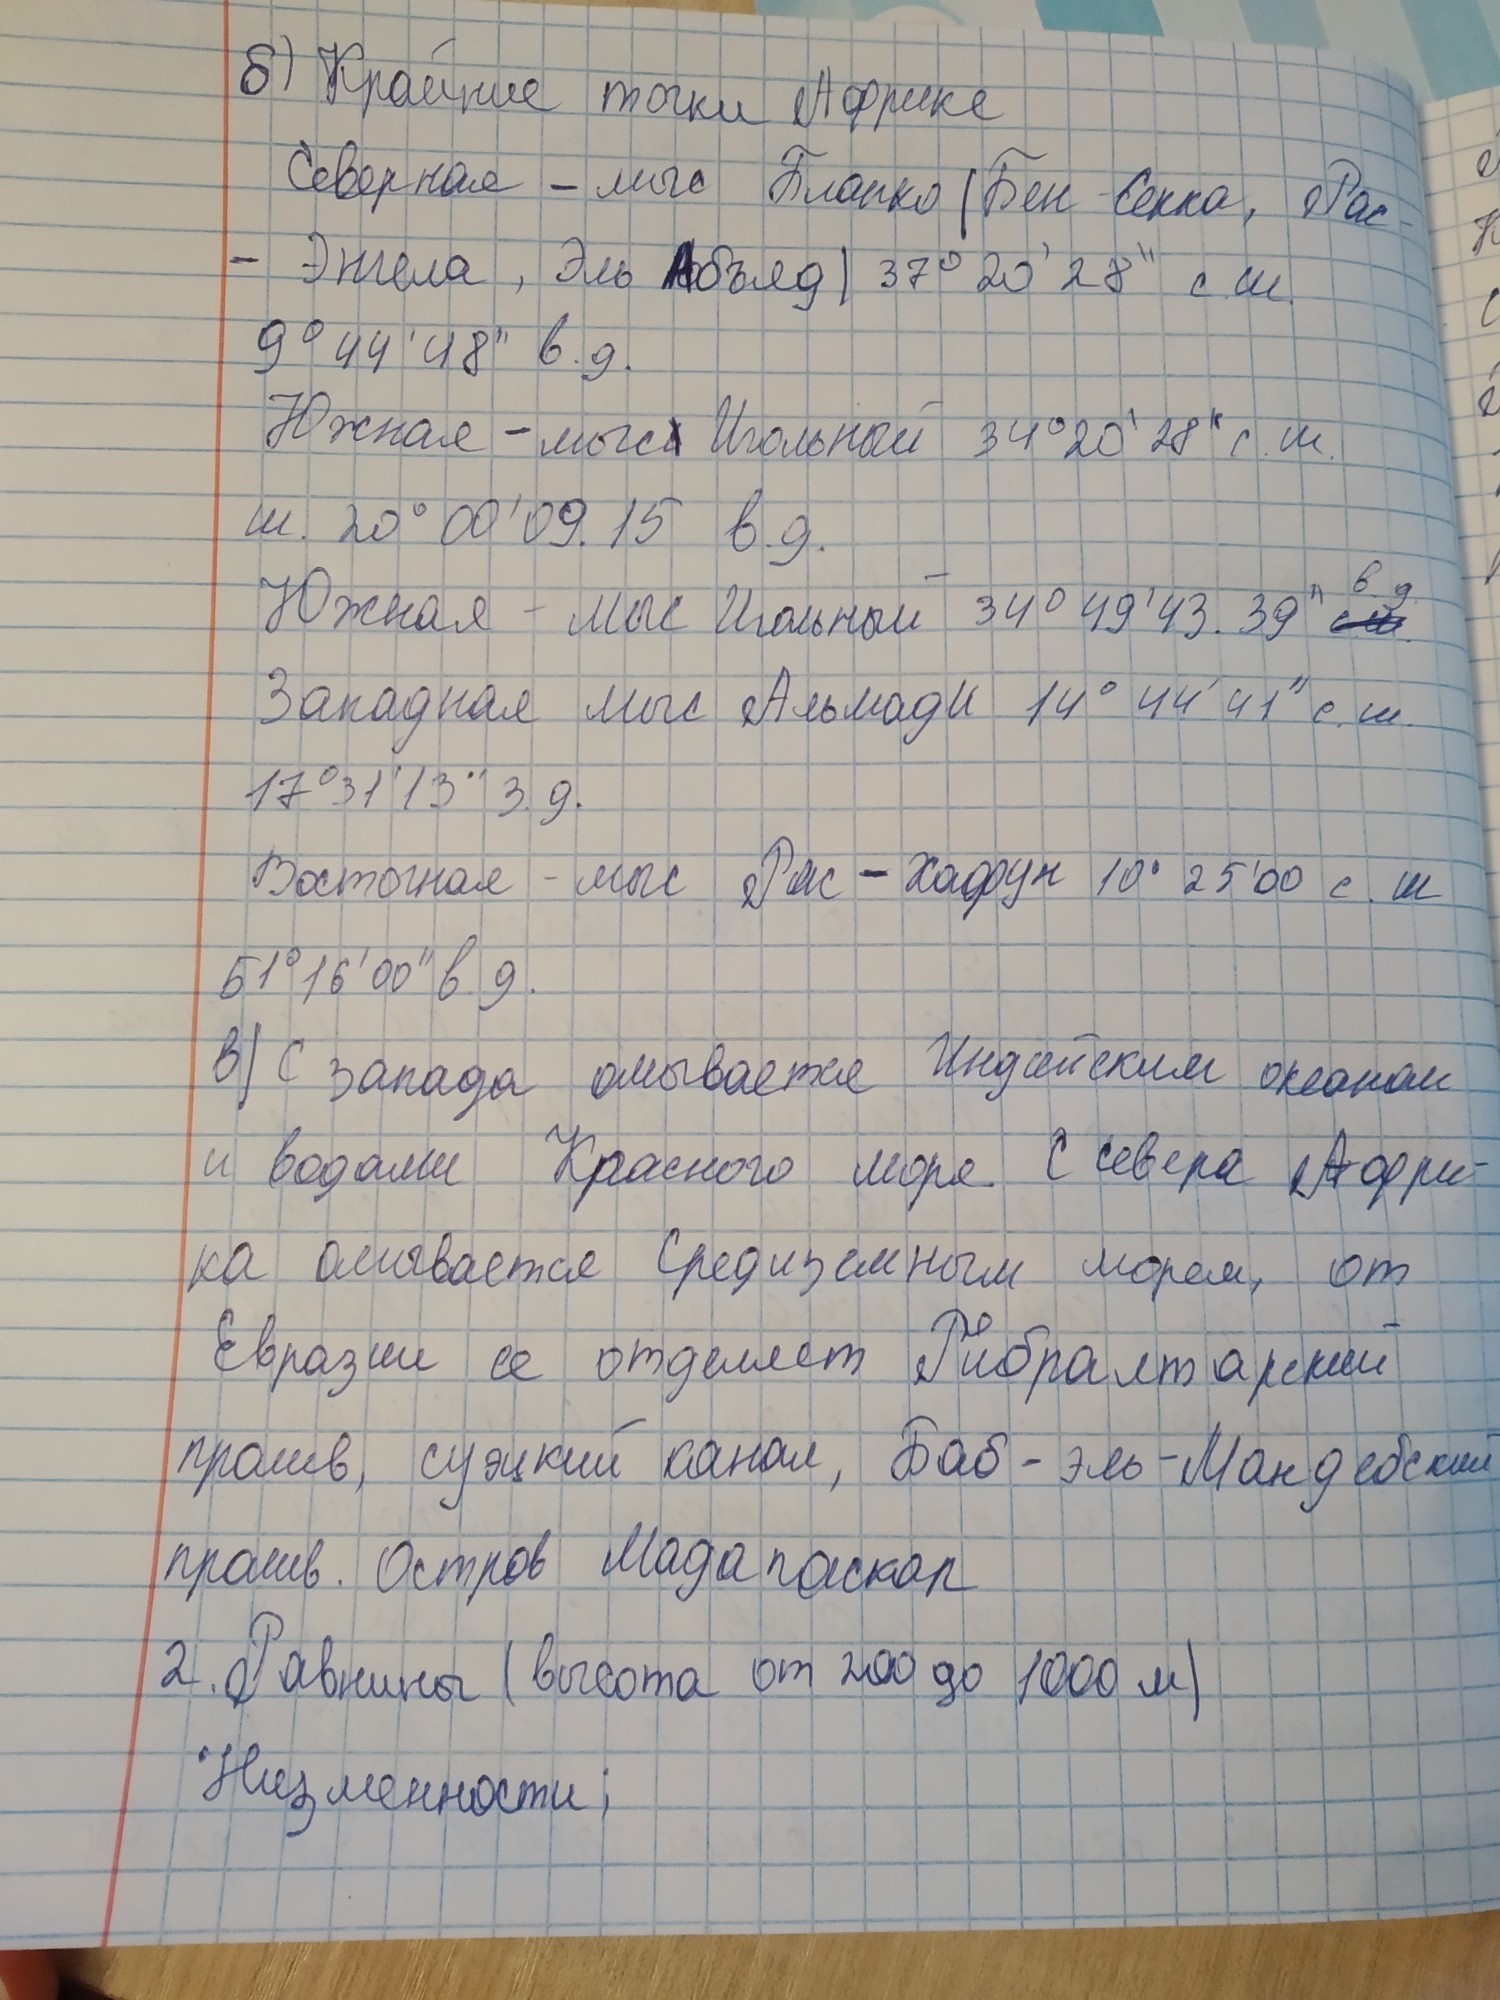 б) Крайние точки Африке
Северная - мыс Бланко (Бен Секка, Рас-
- Энгела, Эль Абъяд) 37° 20' 28" с.ш.
9° 44' 48" в.д.
Южная - мыс Игольный 34° 20' 28" с.ш.
ш. 20° 00' 09.15 в.д.
Южная - мыс Игольный 34° 49' 43.39" в.д.
Западная мыс Альмади 14° 44' 41" с.ш.
17° 31' 13" з.д.
Восточная - мыс Рас - Хафун 10° 25' 00 с.ш
51° 16' 00" в.д.
в) С запада омывается Индийским океаном
и водами Красного моря С севера Афри-
ка омывается Средиземным морем, от
Евразии ее отделяет Гибралтарский
пролив, суэцкий канал, Баб - эль - Мандебский
пролив. Остров Мадагаскар
2. Равнины (высота от 200 до 1000 м)
•Низменности;